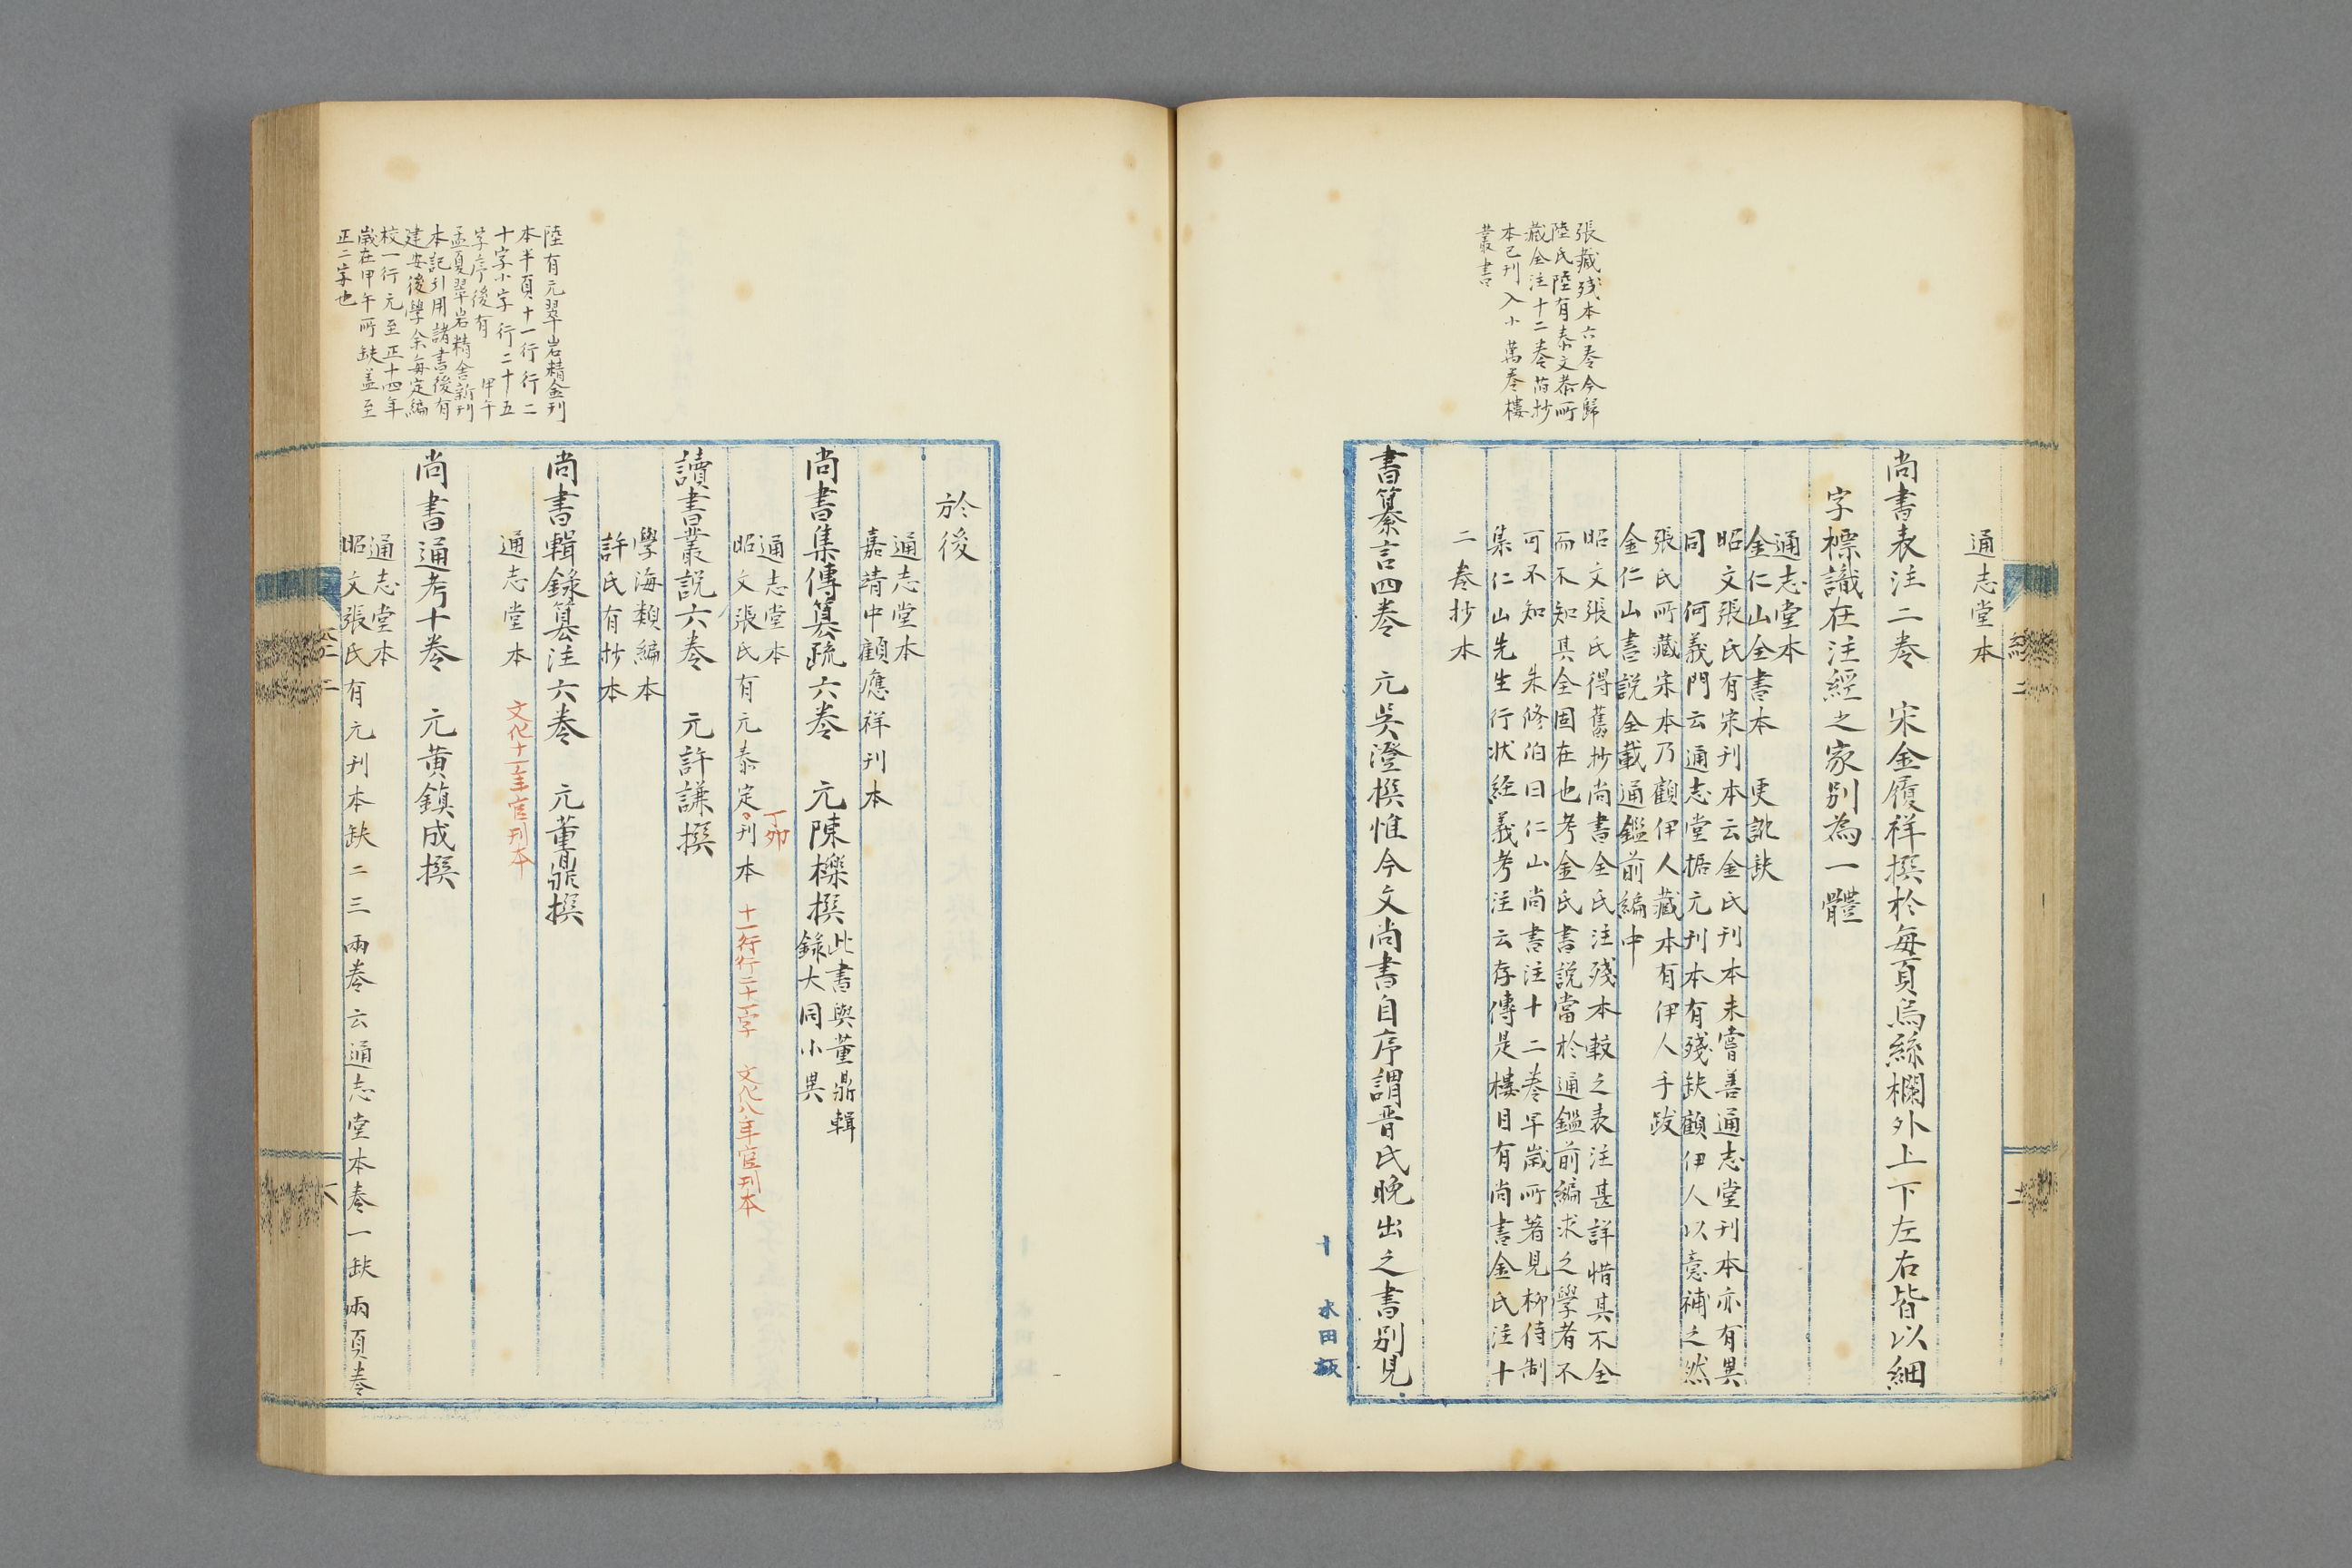 張藏殘本六卷今歸
陸氏陸有秦文恭所
藏全注十二卷舊抄
本已刊入小萬卷樓
叢書
通志堂本
尚書表注二卷　宋金履祥撰於每頁烏絲欄外上下左右皆以細
字標識在注經之家別為一體
通志堂本
金仁山全書本　更訛缺
昭文張氏有宋刊本云金氏刊本未嘗善通志堂刊本亦有異
同　何義門云通志堂據元刊本有殘缺顧伊人以意補之然
張氏所藏宋本乃顧伊人藏本有伊人手跋
金仁山書說全載通鑑前編中
昭文張氏得舊抄尚書金氏注殘本較之表注甚詳惜其不全
而不知其全固在也考金氏書說當於通鑑前編求之學者不
可不知　朱修伯曰仁山尚書注十二卷早歲所著見柳待制
集仁山先生行狀經義考注云存傳是樓目有尚書金氏注十
二卷抄本
書纂言四卷　元吳澄撰惟今文尚書自序謂晉氏晚出之書別見
十
經二
陸有元翠岩精舍刊
本半頁十一行行二
十字小字行二十五
字序後有　甲午
孟夏翠岩精舍新刊
本記引用諸書後有
建安後學余安定編
校一行元至正十四年
歲在甲午所缺蓋至
正二字也
於後
通志堂本
嘉靖中顧應祥刊本
尚書集傳纂疏六卷　元陳櫟撰此書與董鼎輯
錄大同小異
通志堂本
昭文張氏有元泰定丁卯刊本　十一行行二十一字　文化八年官刊本
讀書叢說六卷　元許謙撰
學海類編本
許氏有抄本
尚書輯錄纂注六卷　元董鼎撰
通志堂本　文化十一年官刊本
尚書通考十卷　元黃鎮成撰
通志堂本
昭文張氏有元刊本缺二三兩卷云通志堂本卷一缺兩頁卷